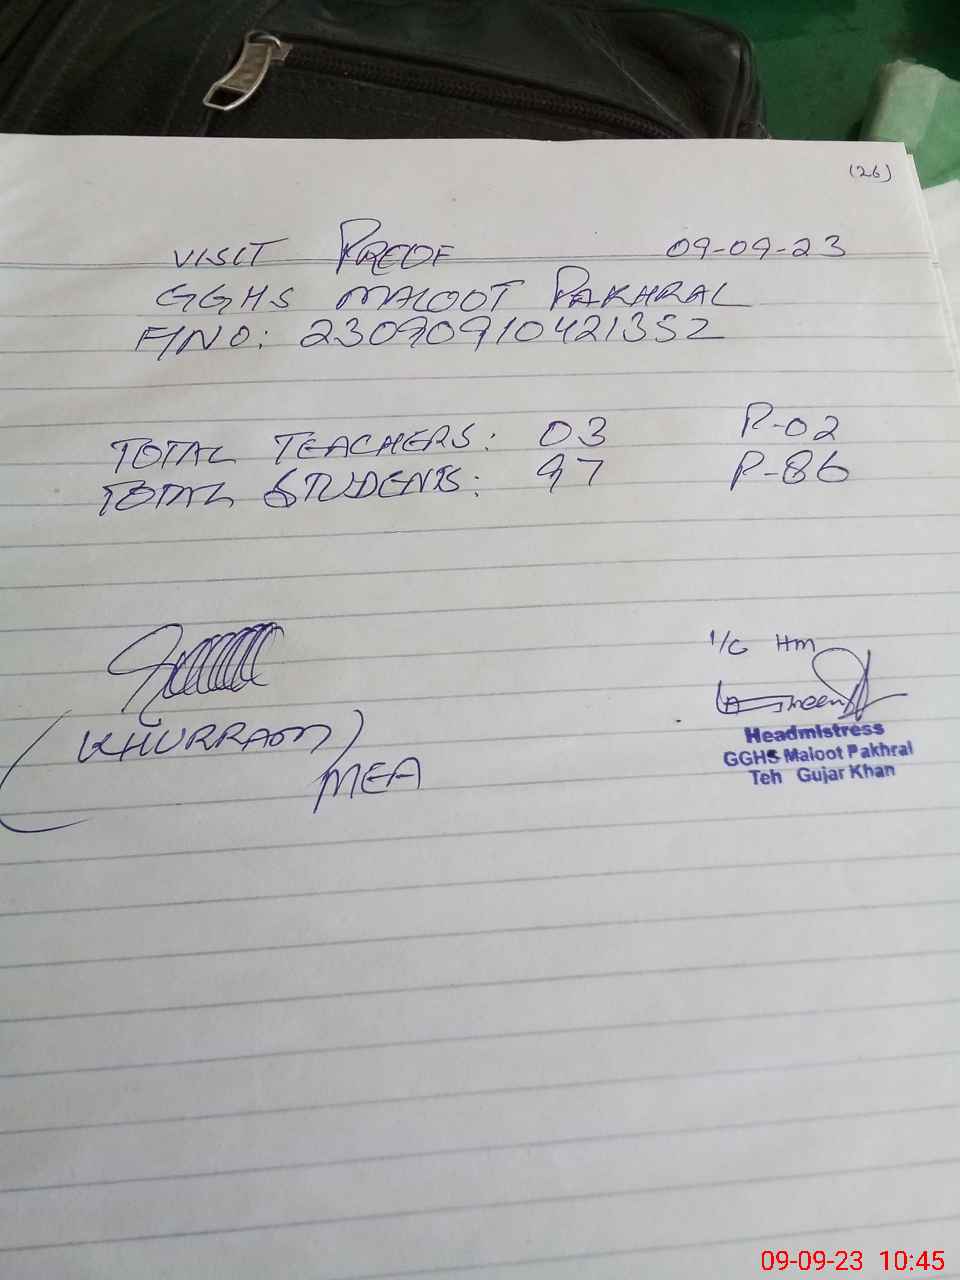 (26)
VISIT PROOF 09-09-23
GGHS MALOOT PAKHRAL
F/NO: 23090910421352
TOTAL TEACHERS: 03 P-02
TOTAL STUDENTS: 97 P-86
1/C Hm
(KHURRAM)
MEA
Headmistress
GGHS Maloot Pakhral
Teh Gujar Khan
09-09-23 10:45